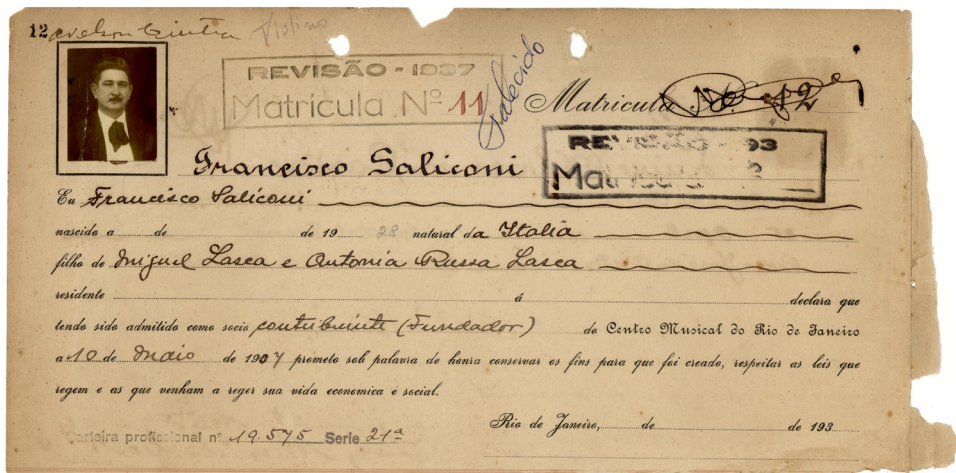 12 Violino
REVISÃO - 1937
Matrícula Nº 11
falecido
Matricula No. 12
REVISÃO - 193
Francisco Saliconi
Eu Francisco Saliconi
nascido a de de 19 28 natural da Italia
filho de Miguel Lasca e Antonia Russa Lasca
residente á declara que
tendo sido admitido como socio contribuinte (Fundador) do Centro Musical do Rio de Janeiro
a 10 de Maio de 1907 prometo sob palavra de honra conservar os fins para que foi creado, respeitar as leis que
regem e as que venham a reger sua vida economica e social.
Rio de Janeiro, de de 193
Carteira profissional nº 19.575 Serie 21ª